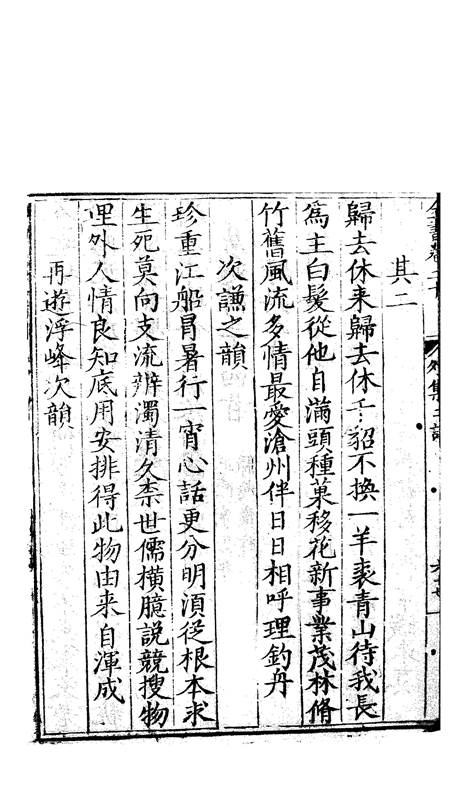 其二
歸去休来歸去休千貂不換一羊裘青山待我長
爲主白髮從他自滿頭種菓移花新事業茂林脩
竹舊風流多情最愛滄州伴日日相呼理釣舟
次謙之韻
珍重江船冒暑行一宵心話更分明湏從根本求
生死莫向支流辯濁清久柰世儒橫臆說競搜物
理外人情良知底用安排得此物由来自渾成
再遊浮峰次韻